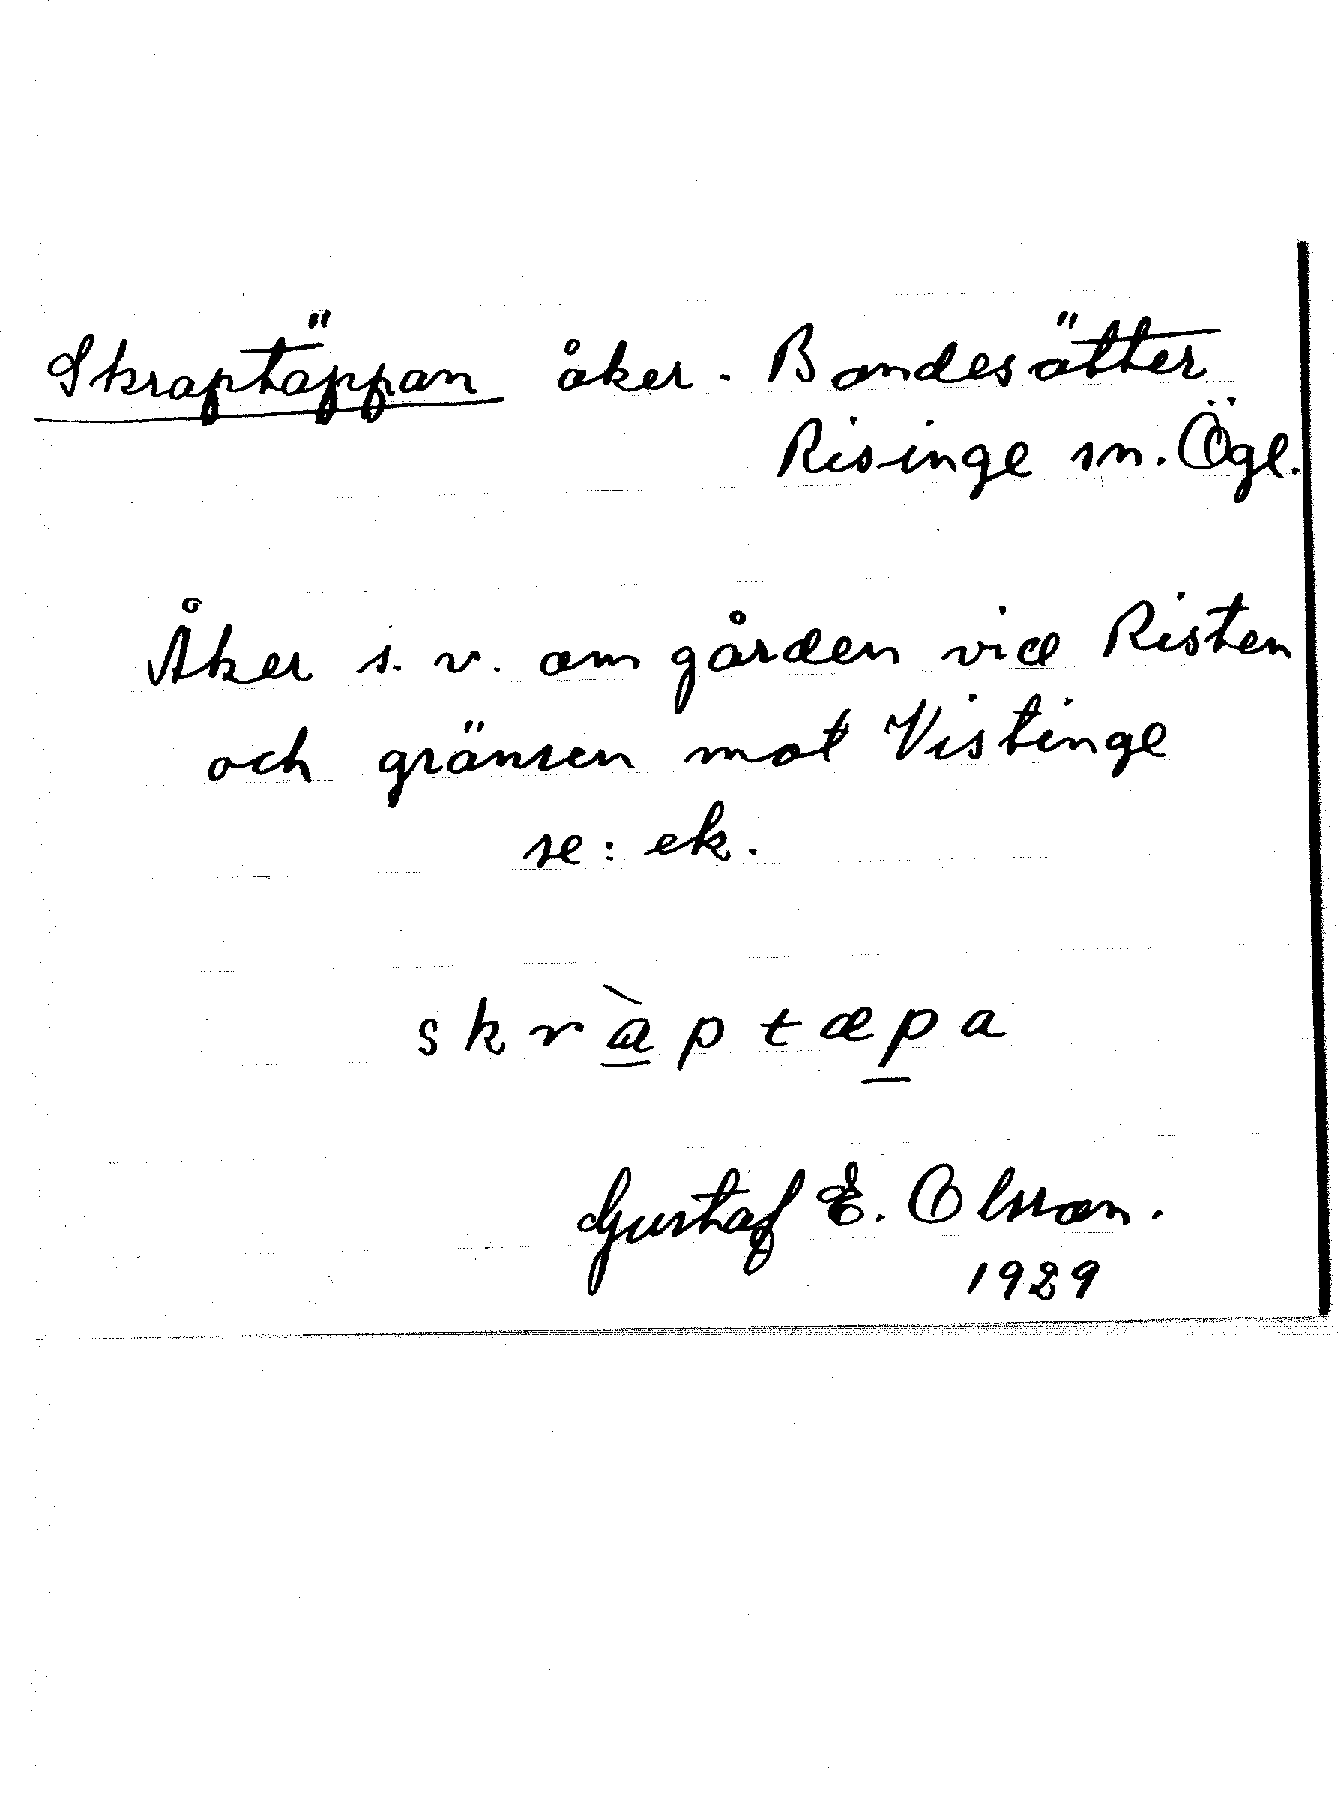 Skraptäppan åker. Bondesätter
Risinge sn. Ögl.
Åker s. v. om gården vid Risten
och gränsen mot Vistinge
se: ek.
skrà̠ptæp̠a
Gustaf E. Olsson.
1929